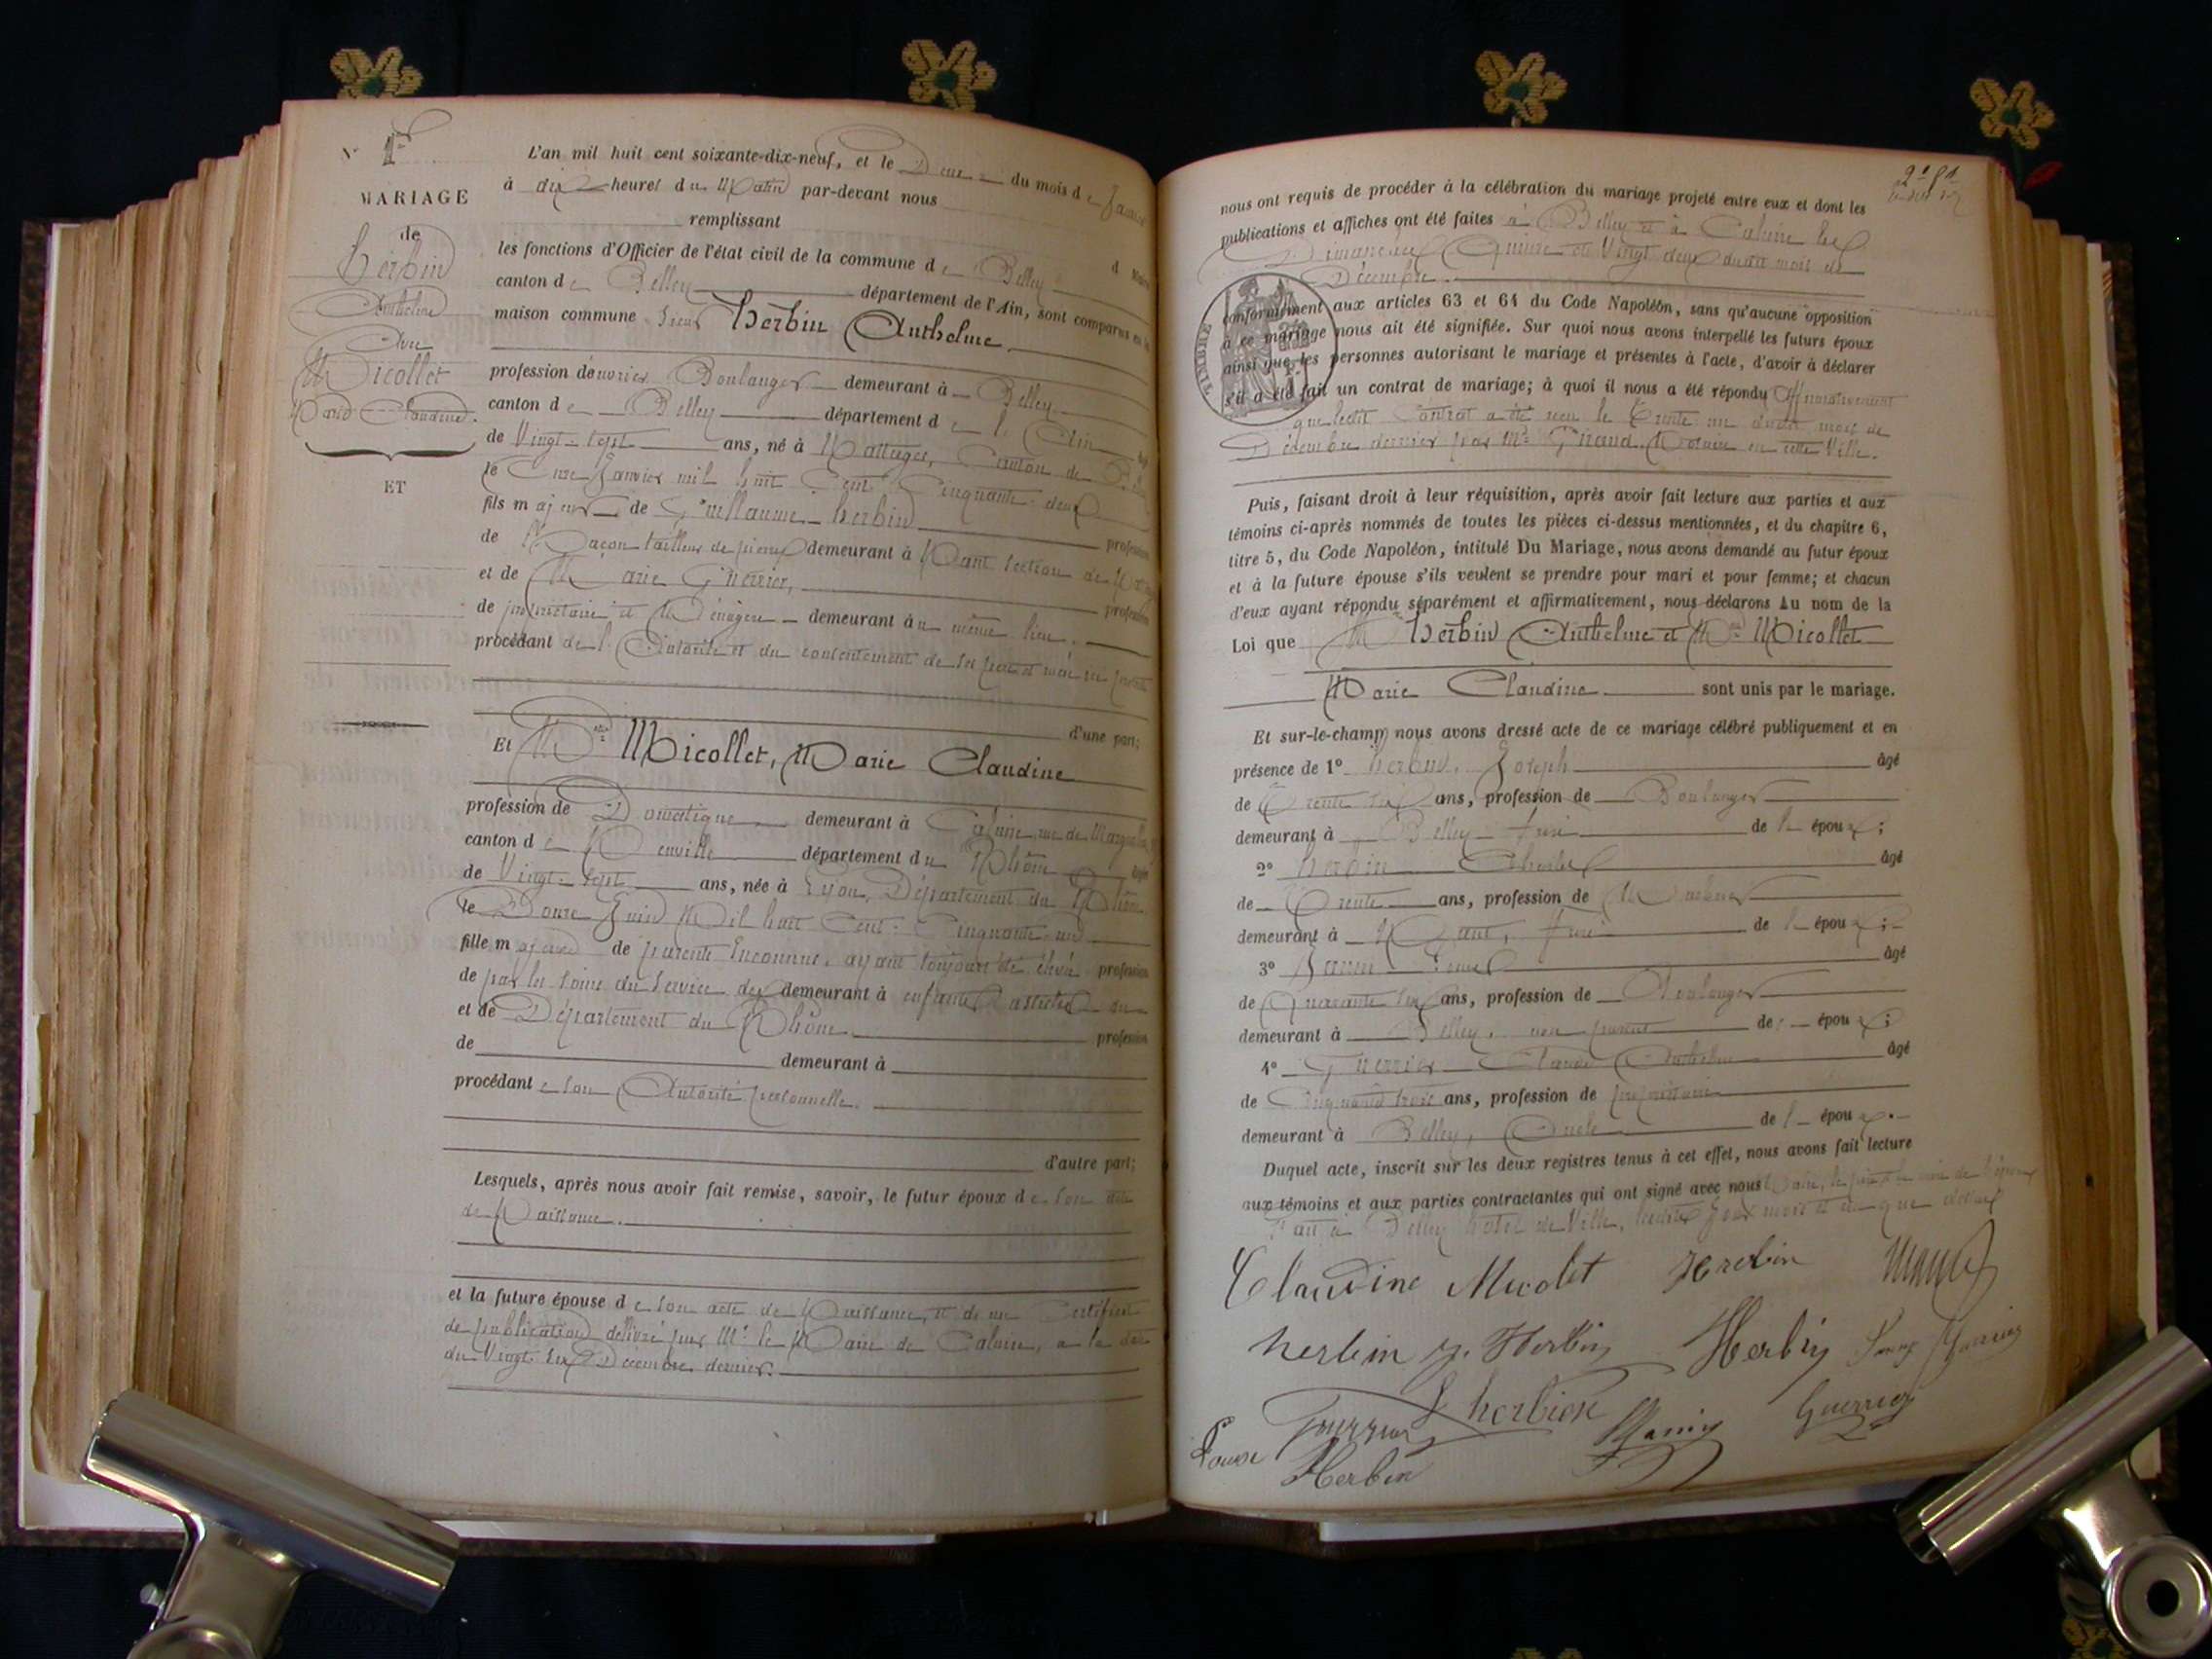 N° 1er
MARIAGE
de
Herbin
Anthelme
Avec
Micollet
Marie Claudine.
ET
L'an mil huit cent soixante-dix-neuf, et le Deux du mois de Janvier
à dix heures du Matin par-devant nous
remplissant
les fonctions d'Officier de l'état civil de la commune de Belley
canton de Belley département de l'Ain, sont comparus en la
maison commune Sieur Herbin Anthelme
profession d'ouvrier Boulanger demeurant à Belley
canton de Belley département de l'Ain âgé
de Vingt-sept ans, né à Nattages, Canton de Belley
le Onze Janvier mil huit Cent Cinquante-deux
fils majeur de Guillaume Herbin profession
de Maçon tailleur de pierres demeurant à Nant section de
et de Marie Guerrier, profession
de propriétaire et Ménagère demeurant au même lieu.
procédant de l'Autorité et du consentement de ses père et mère ici présents
d'une part;
Et Mlle Micollet, Marie Claudine
profession de Domestique demeurant à Caluire rue de Margnolles
canton de Neuville département du Rhône âgée
de Vingt-sept ans, née à Lyon, Département du Rhône
le Douze Juin Mil huit Cent Cinquante-un
fille majeure de parents Inconnus, ayant toujours été élevée profession
de par les soins du Service des demeurant à enfants assistés du
et de Département du Rhône profession
de demeurant à
procédant de son Autorité personnelle.
d'autre part;
Lesquels, après nous avoir fait remise, savoir, le futur époux de son acte
de Naissance.
et la future épouse de son acte de Naissance, et de un Certificat
de publication délivré par Mr le Maire de Caluire, à la date
du Vingt six Décembre dernier.
nous ont requis de procéder à la célébration du mariage projeté entre eux et dont les
publications et affiches ont été faites à Belley et à Caluire les
Dimanches Quinze et Vingt deux du mois de
Décembre
TIMBRE
conformément aux articles 63 et 64 du Code Napoléon, sans qu'aucune opposition
à ce mariage nous ait été signifiée. Sur quoi nous avons interpellé les futurs époux
ainsi que les personnes autorisant le mariage et présentes à l'acte, d'avoir à déclarer
s'il a été fait un contrat de mariage; à quoi il nous a été répondu Affirmativement
que ledit Contrat a été reçu le Trente un dudit mois de
Décembre dernier par Me Giraud Notaire en cette Ville.
Puis, faisant droit à leur réquisition, après avoir fait lecture aux parties et aux
témoins ci-après nommés de toutes les pièces ci-dessus mentionnées, et du chapitre 6,
titre 5, du Code Napoléon, intitulé Du Mariage, nous avons demandé au futur époux
et à la future épouse s'ils veulent se prendre pour mari et pour femme; et chacun
d'eux ayant répondu séparément et affirmativement, nous déclarons Au nom de la
Loi que Mr Herbin Anthelme et Mlle Micollet
Marie Claudine sont unis par le mariage.
Et sur-le-champ nous avons dressé acte de ce mariage célébré publiquement et en
présence de 1° Herbin, Joseph âgé
de Trente six ans, profession de Boulanger
demeurant à Belley frère de l'époux;
2° Herbin Charles âgé
de Trente ans, profession de
demeurant à Nant, frère de l'époux;
3° Louis âgé
de Quarante six ans, profession de Boulanger
demeurant à Belley, non parent de époux;
4° Guerrier Claude Anthelme âgé
de Cinquante trois ans, profession de propriétaire
demeurant à Belley, Oncle de l'époux.
Duquel acte, inscrit sur les deux registres tenus à cet effet, nous avons fait lecture
aux témoins et aux parties contractantes qui ont signé avec nous Maire, le père et la mère de l'époux
Fait à Belley hôtel de Ville, lesdits jour mois et an que dessus
Claudine Micolet Herbin
herbin j. Herbin Herbin
herbin Guerrier
Louise Herbin